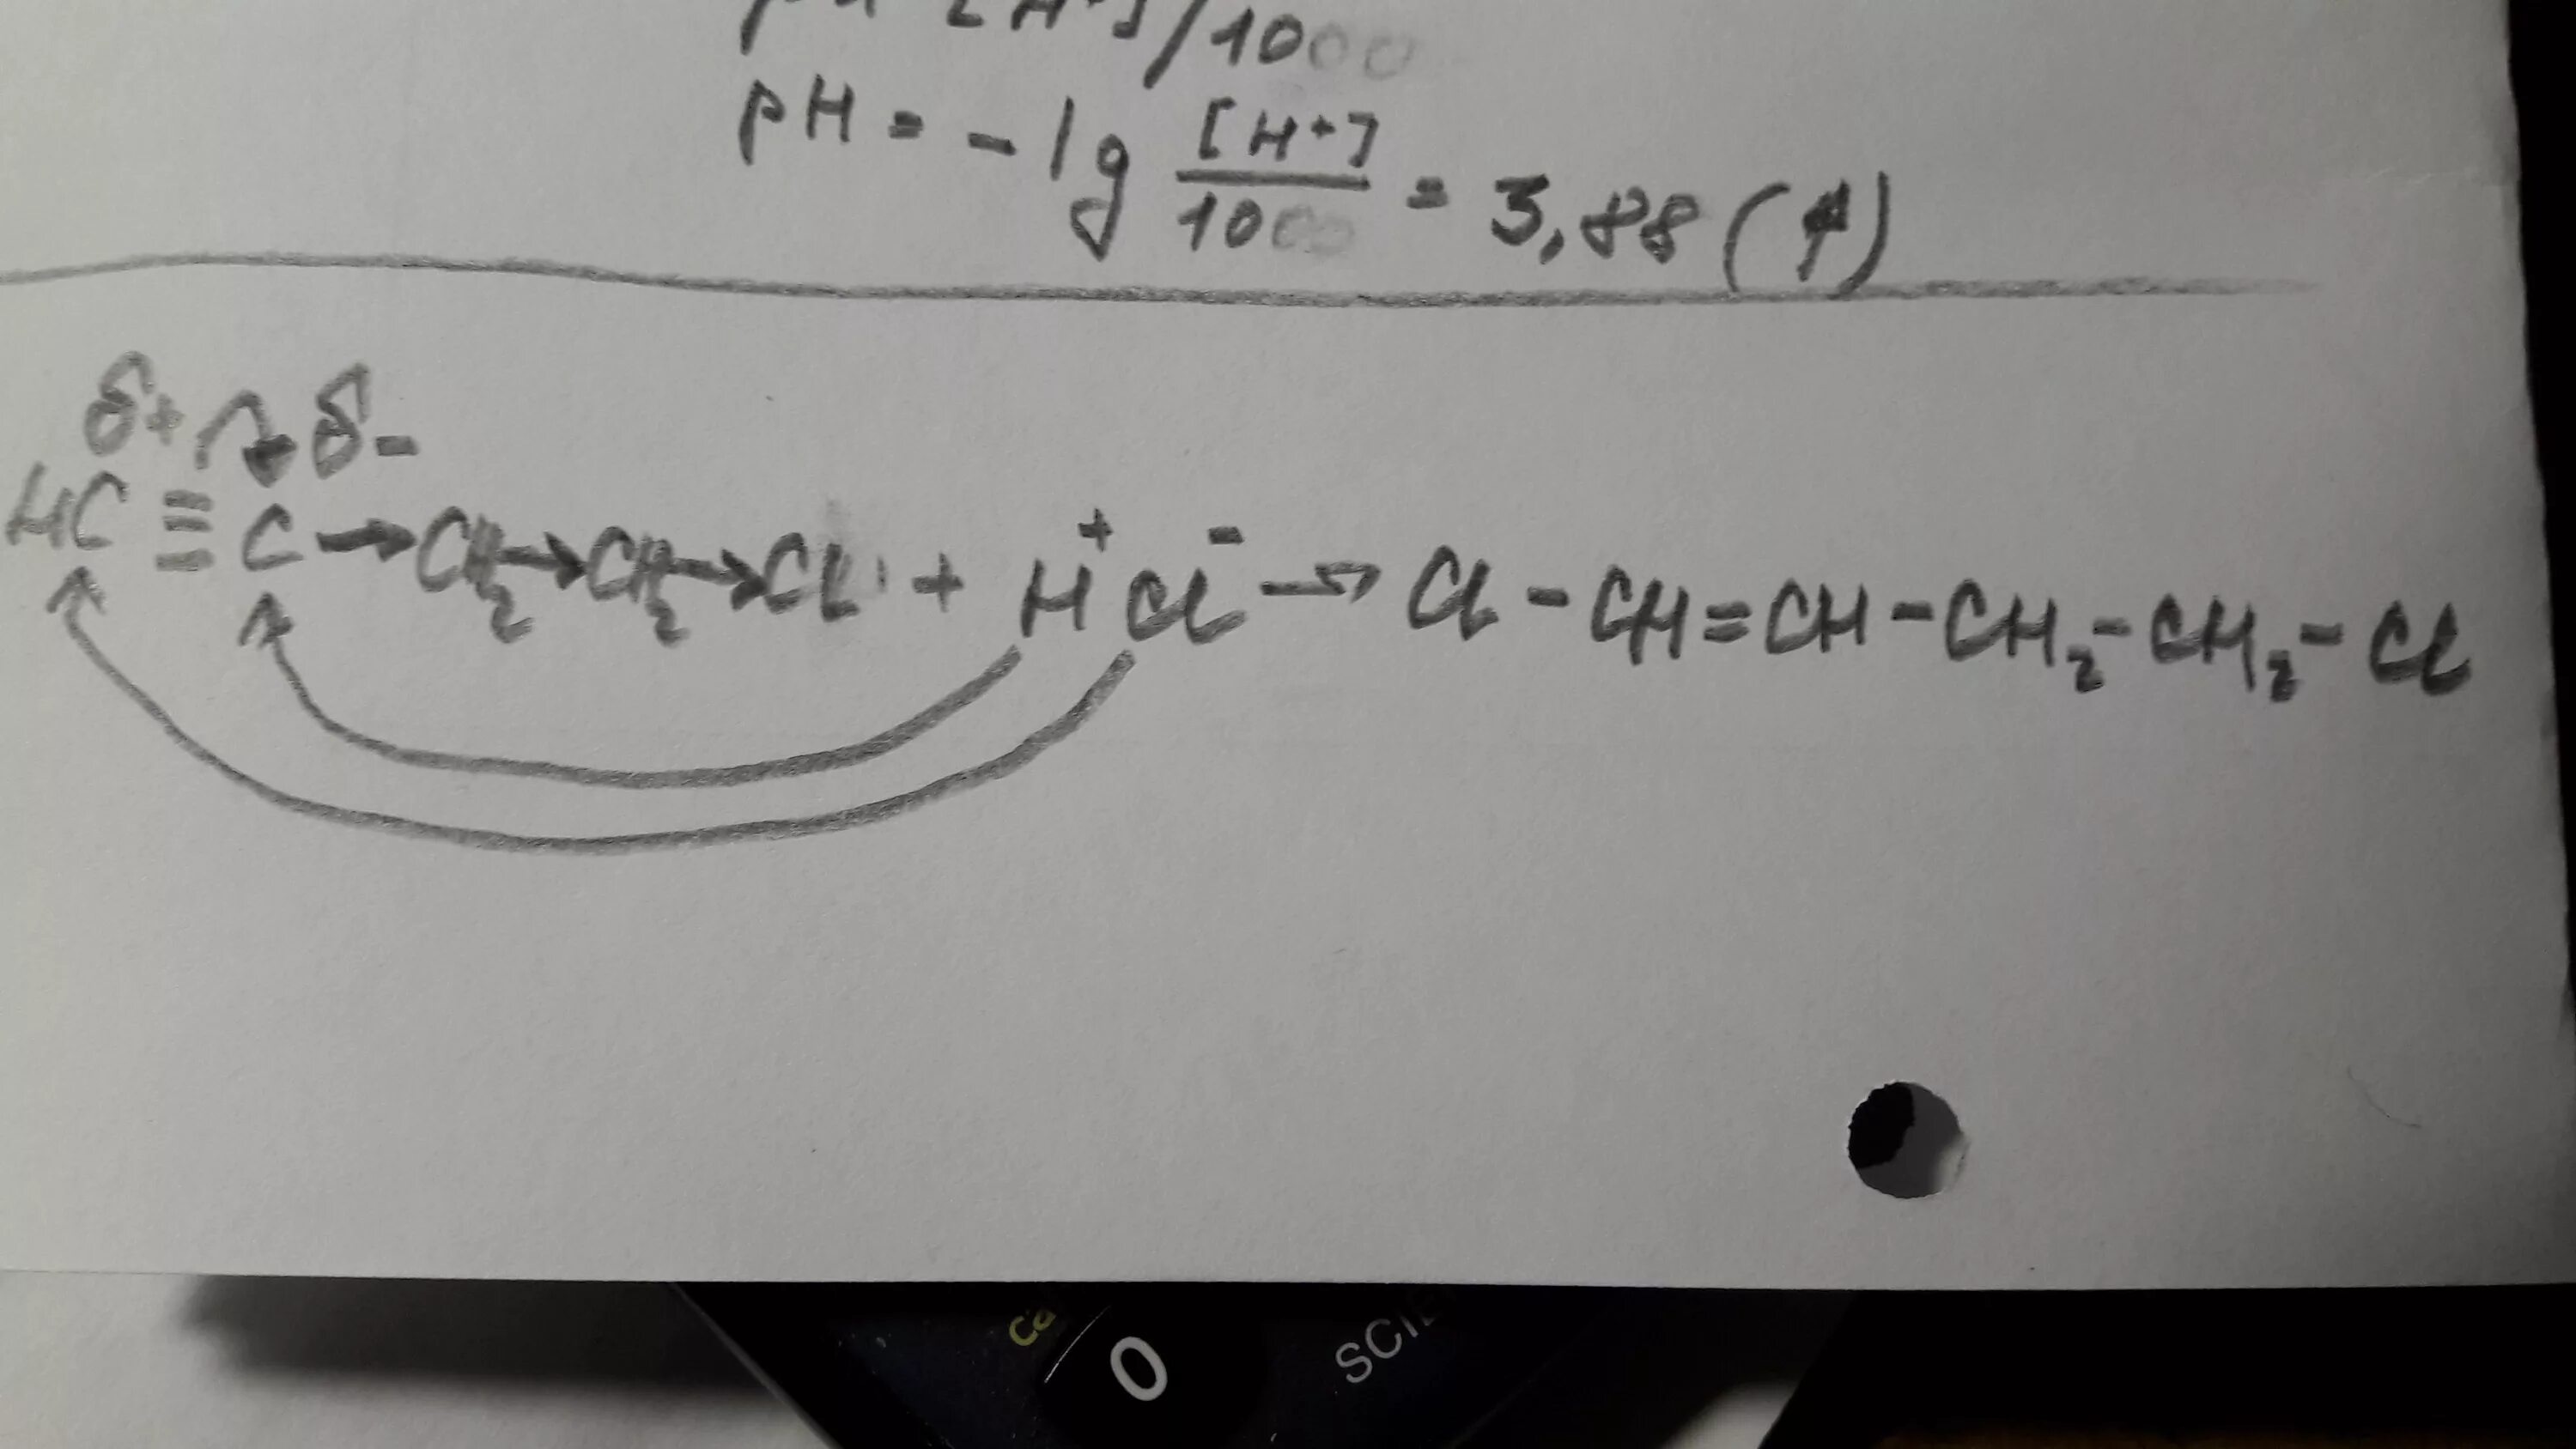 [H⁺]/1000
pH = -lg [H⁺]/1000 = 3,88 (4)
δ+ δ-
HC ≡ C → CH₂ → CH₂ → Cl + H⁺Cl⁻ → Cl - CH = CH - CH₂ - CH₂ - Cl
0